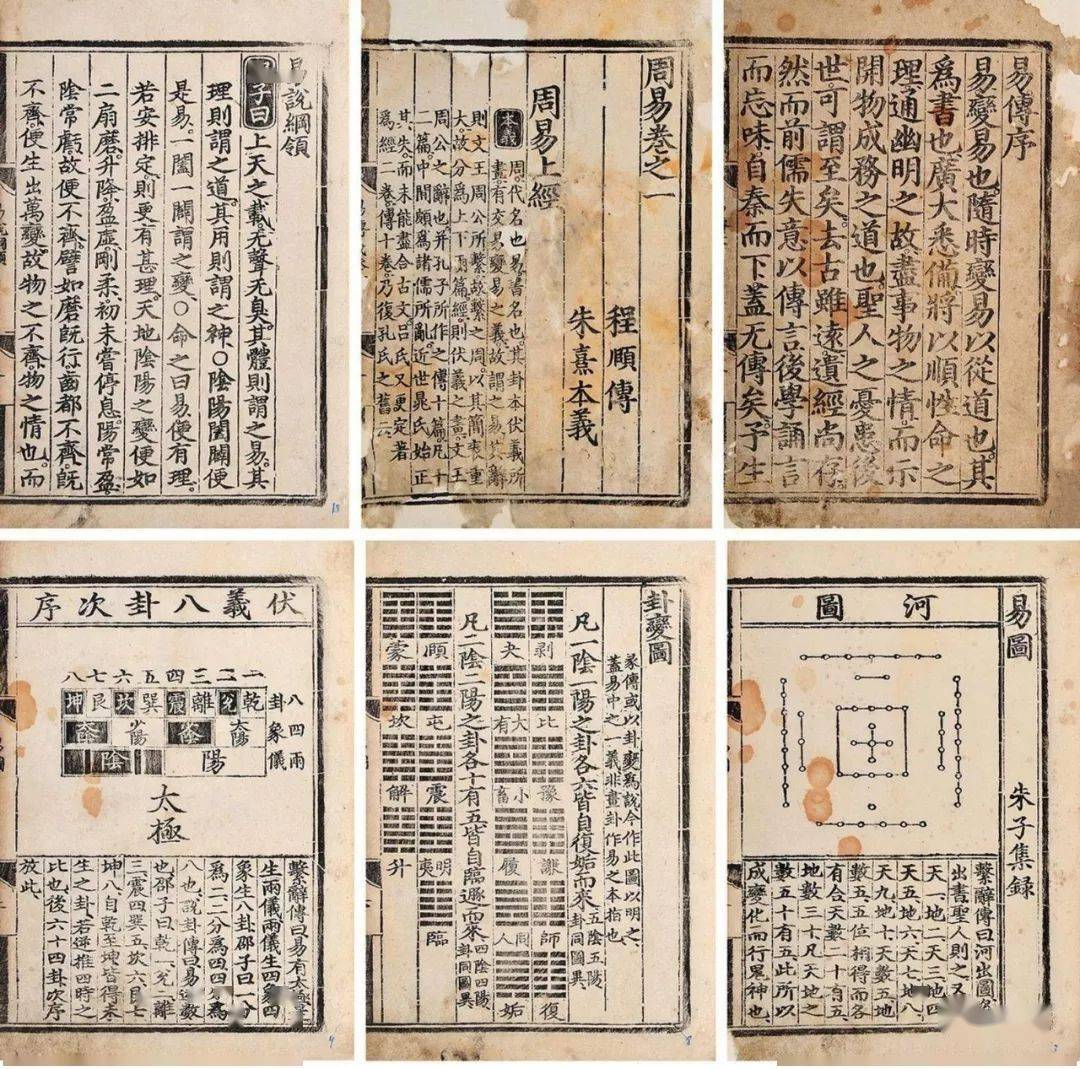 易傳序
易變易也隨時變易以從道也其
為書也廣大悉備將以順性命之
理通幽明之故盡事物之情而示
開物成務之道也聖人之憂患後
世可謂至矣去古雖遠遺經尚存
然而前儒失意以傳言後學誦言
而忘味自秦而下蓋无傳矣予生
周易卷之一
程頤傳
朱熹本義
周易上經
本義 周代名也易書名也其卦本伏羲所
畫有交易變易之義故謂之易其辭
則文王周公所繫故繫之周以其簡袠重
大故分為上下兩篇經則伏羲之畫文王
周公之辭也并孔子所作之傳十篇凡十
二篇中間頗為諸儒所亂近世晁氏始正
其失而未能盡合古文呂氏又更定著
為經二卷傳十卷乃復孔氏之舊云
易說綱領
子曰上天之載无聲无臭其體則謂之易其
理則謂之道其用則謂之神○陰陽闔闢便
是易一闔一闢謂之變○命之曰易便有理
若安排定則更有甚理天地陰陽之變便如
二扇磨升降盈虛剛柔初未嘗停息陽常盈
陰常虧故便不齊譬如磨既行齒都不齊既
不齊便生出萬變故物之不齊物之情也而
易圖
朱子集錄
河圖
繫辭傳曰河出圖洛
出書聖人則之又曰
天一地二天三地四
天五地六天七地八
天九地十天數五地
數五五位相得而各
有合天數二十有五
地數三十凡天地之
數五十有五此所以
成變化而行鬼神也
卦變圖
彖傳或以卦變為說今作此圖以明之
蓋易中之一義非畫卦作易之本指也
凡一陰一陽之卦各六皆自復姤而來 五陰五陽卦同圖異
剝 比 豫 謙 師 復
夬 大有 小畜 履 同人 姤
凡二陰二陽之卦各十有五皆自臨遯而來 四陰四陽卦同圖異
頤 屯 震 明夷 臨
蒙 坎 解 升
伏羲八卦次序
一 二 三 四 五 六 七 八
八卦 乾 兌 離 震 巽 坎 艮 坤
四象 太陽 少陰 少陽 太陰
兩儀 陽 陰
太極
繫辭傳曰易有太極是
生兩儀兩儀生四象四
象生八卦邵子曰一分
為二二分為四四分為
八也說卦傳曰易逆數
也邵子曰乾一兌二離
三震四巽五坎六艮七
坤八自乾至坤皆得未
生之卦若逆推四時之
比也後六十四卦次序
放此